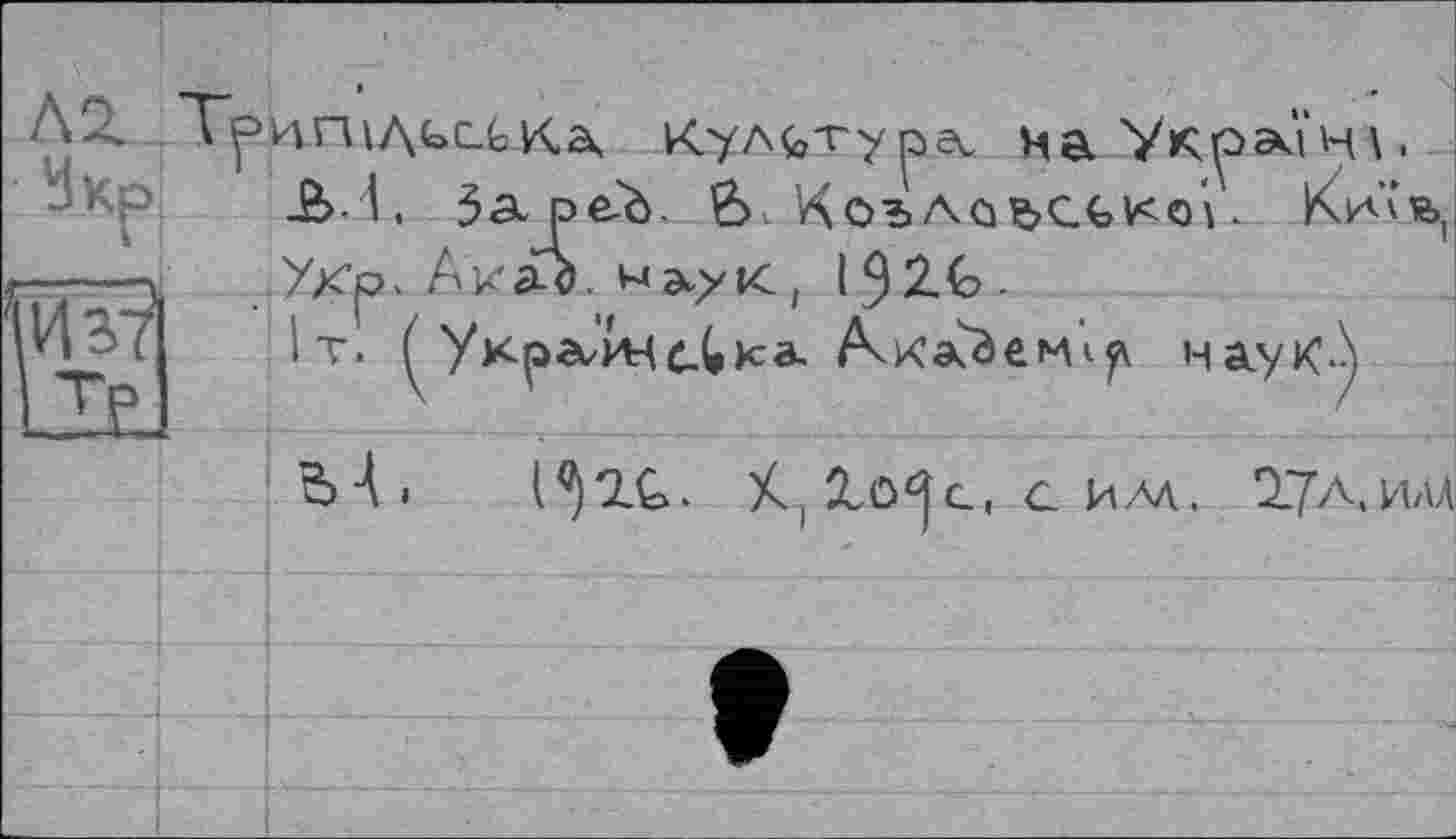 Л2 Трипільська культура на Україні.
Укр В.1. За ред. В. Козловської. Київ,
Укр. Акад. наук, 1926.
И37 1 т. (Українська Академія наук.)
Тр
В 1. 1926. X, 209 с., с илл. 27 л. илл